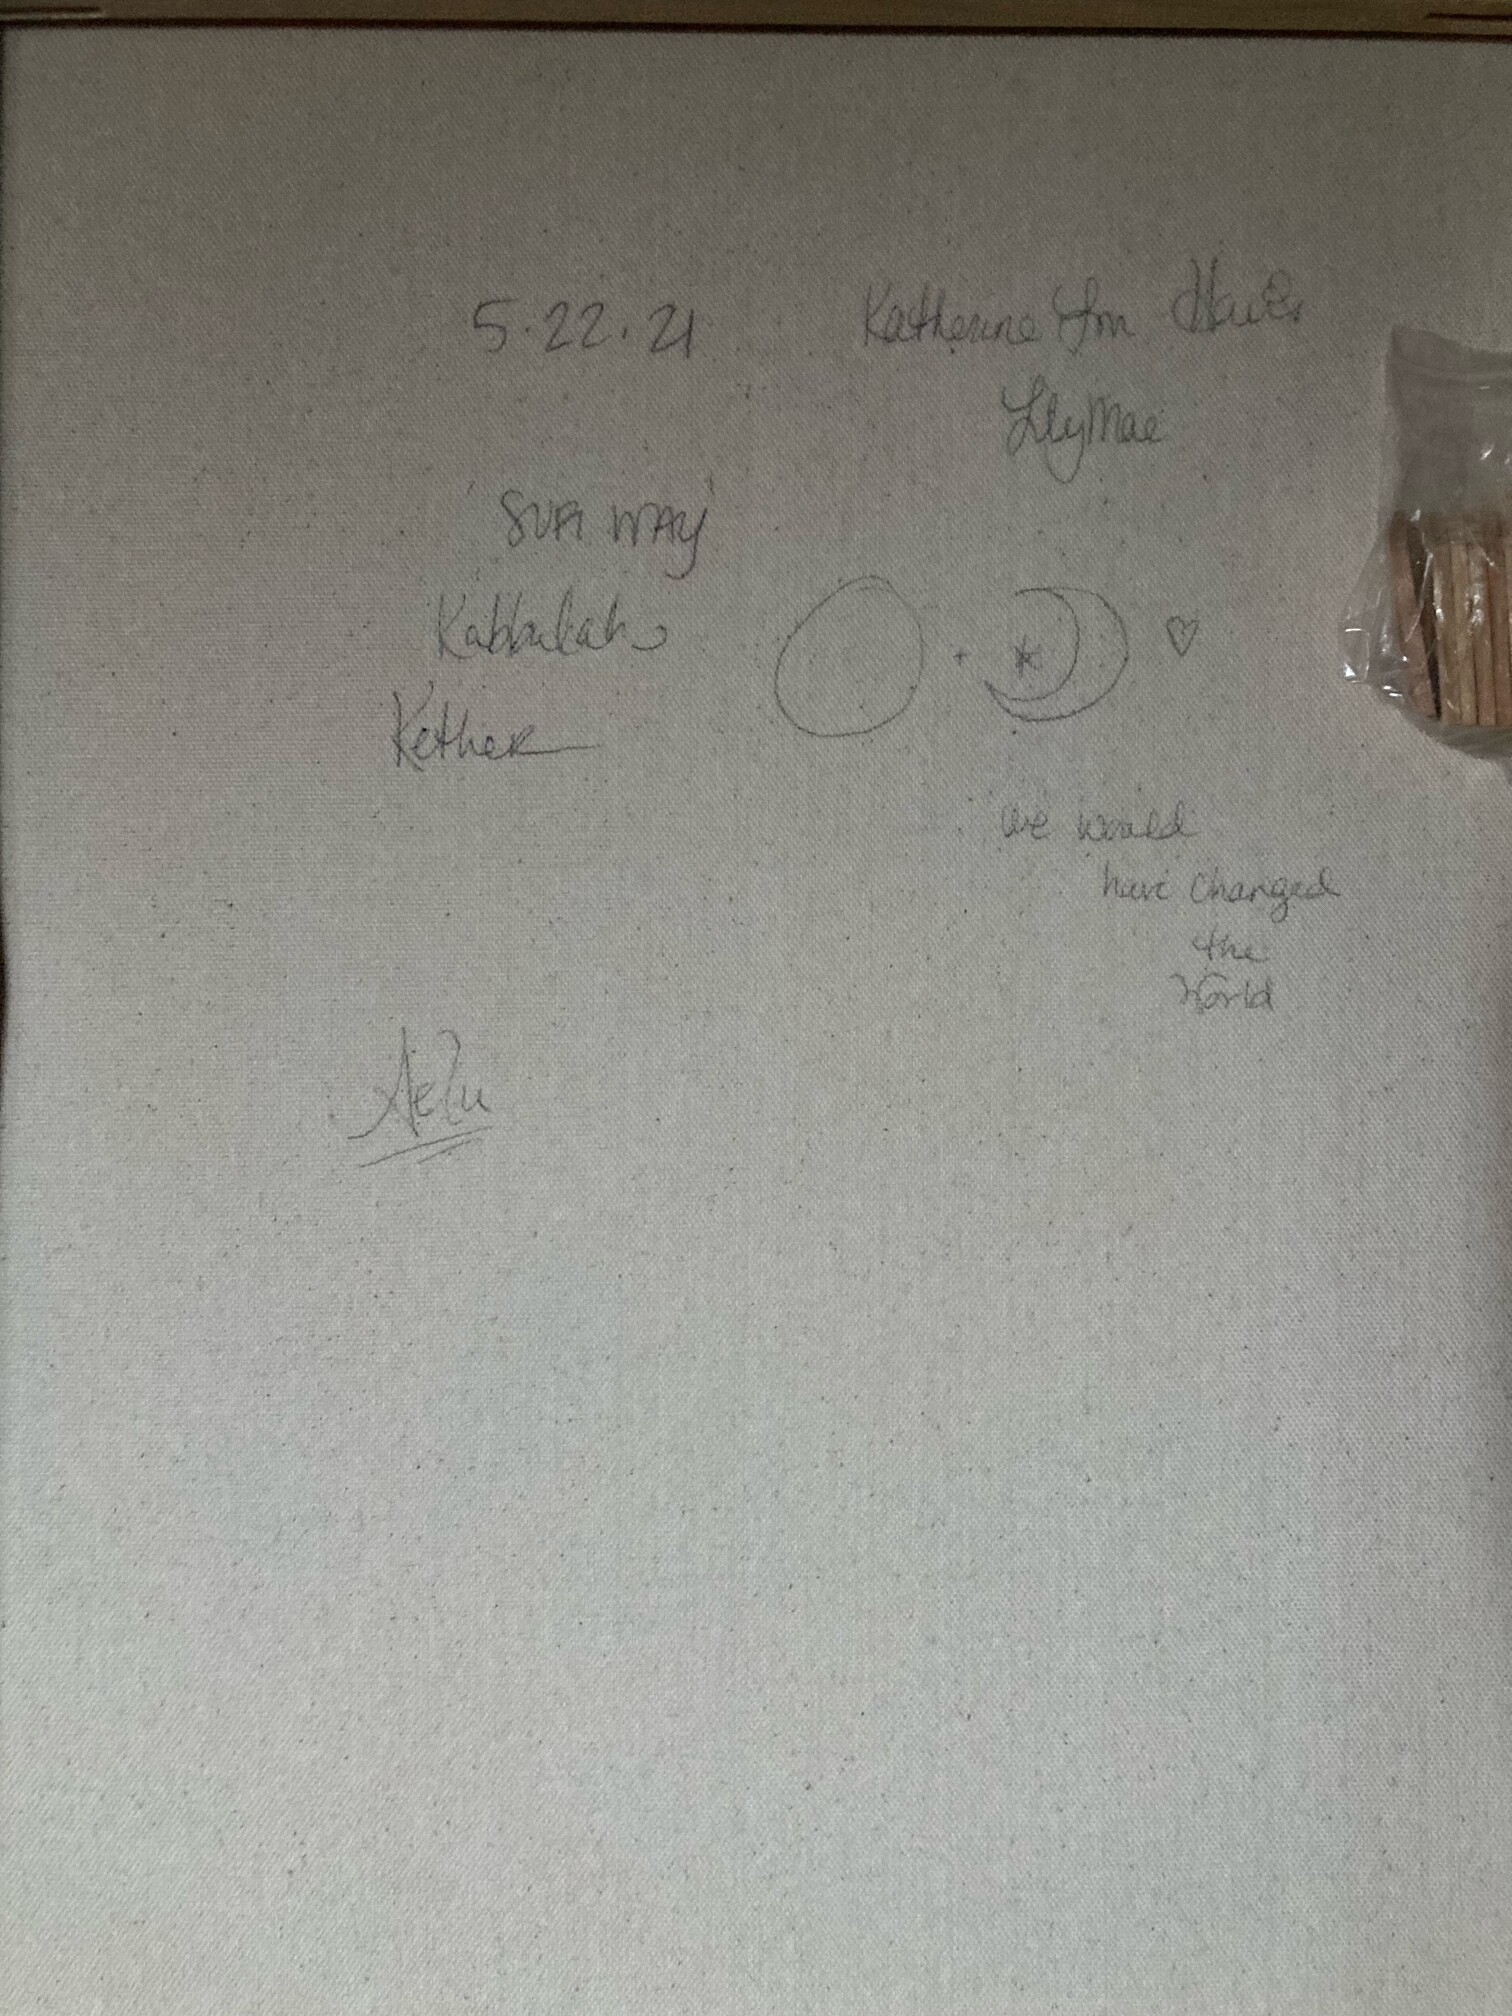 5.22.21
Katherine
LilyMae
'SUFI WAY'
Kabbalah
Kether
+
we would
have changed
the
World